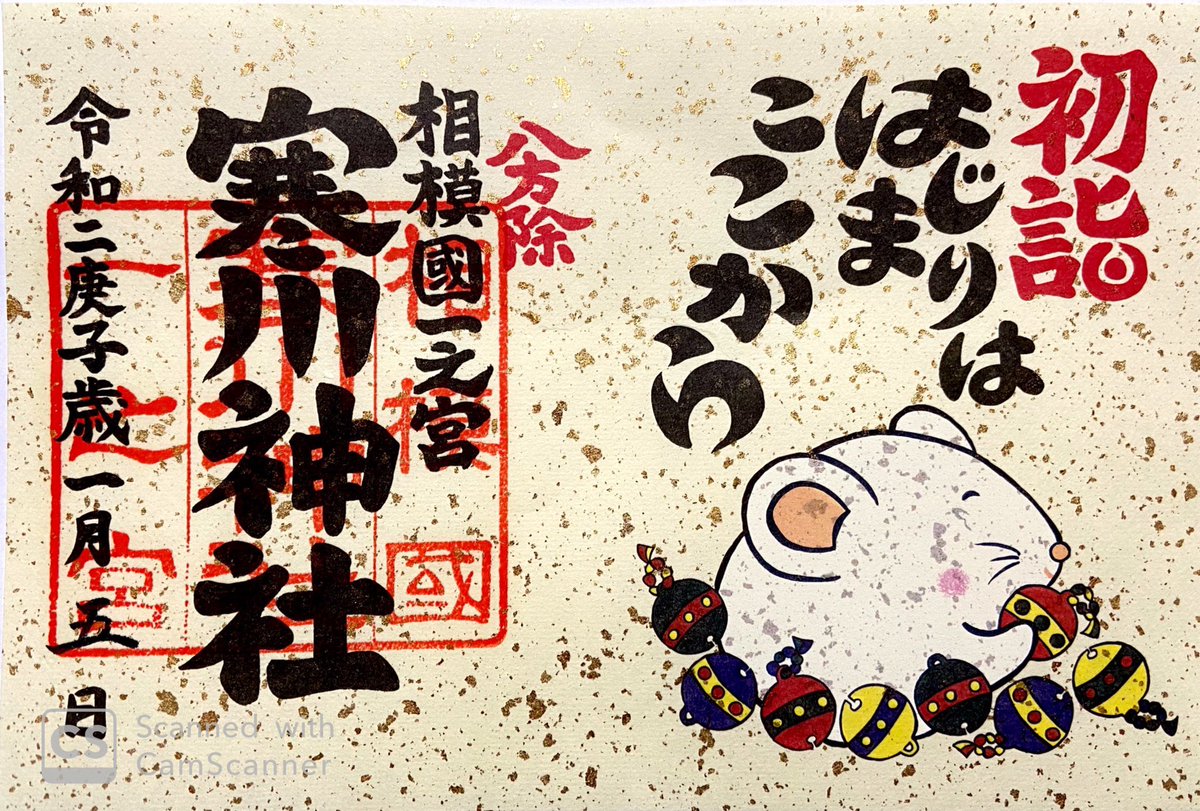 初詣
はじりは
はじま
ここから
八方除
相模國一之宮
寒川神社
令和二庚子歳一月五日
相模國
寒川神社
一之宮
CS Scanned with
CamScanner